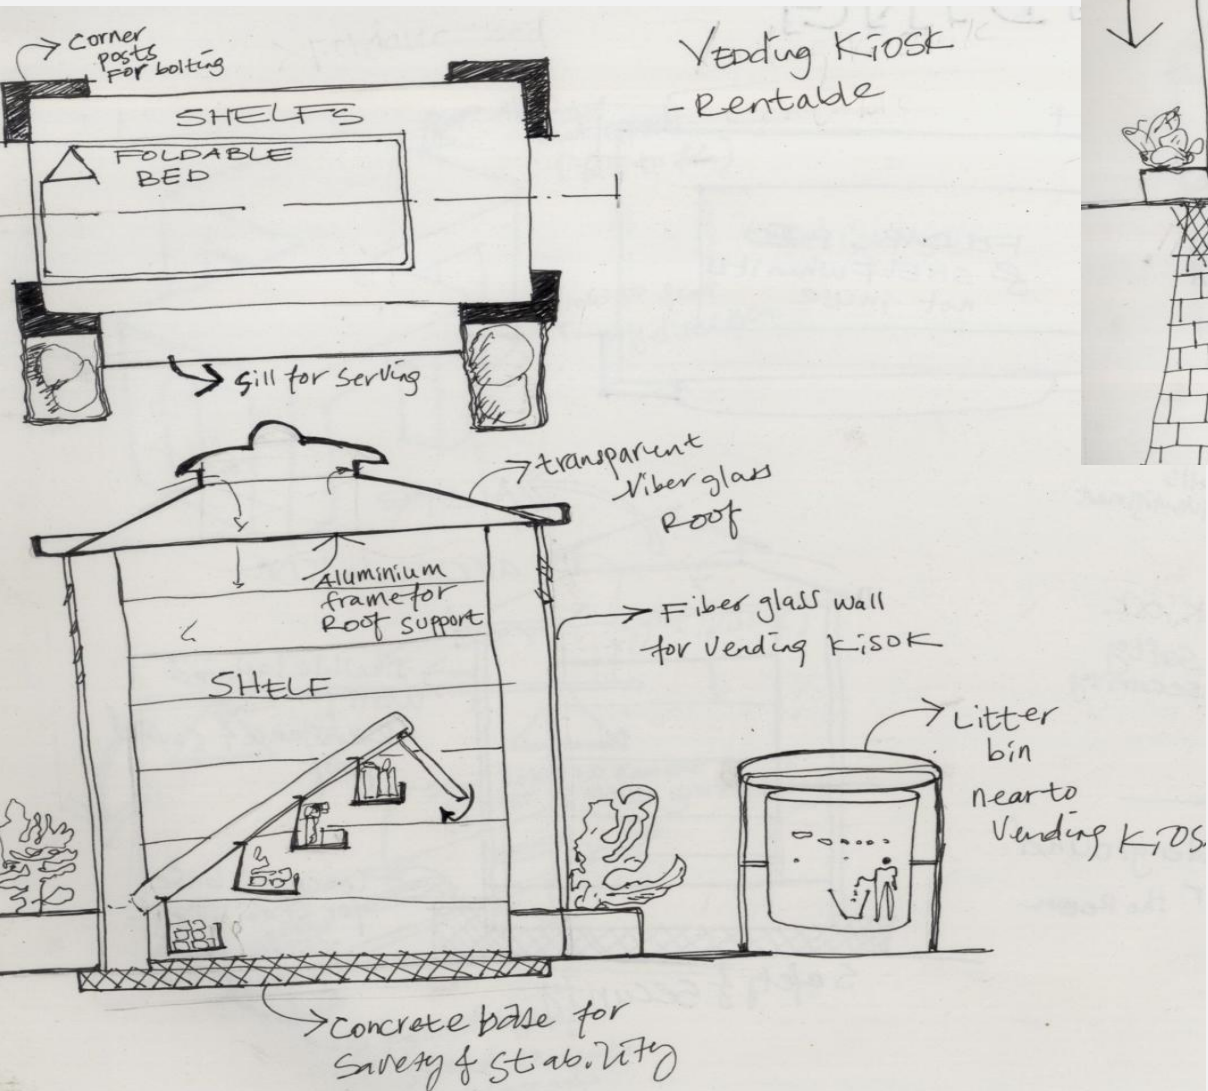 Corner
posts
For bolting
Vending Kiosk
- Rentable
SHELFS
FOLDABLE
BED
Sill for Serving
transparent
Viber glass
Roof
Aluminium
frame for
Roof support
Fiber glass wall
for Vending KiSOK
SHELF
Litter
bin
near to
Vending KiOS
Concrete base for
Savety & Stability